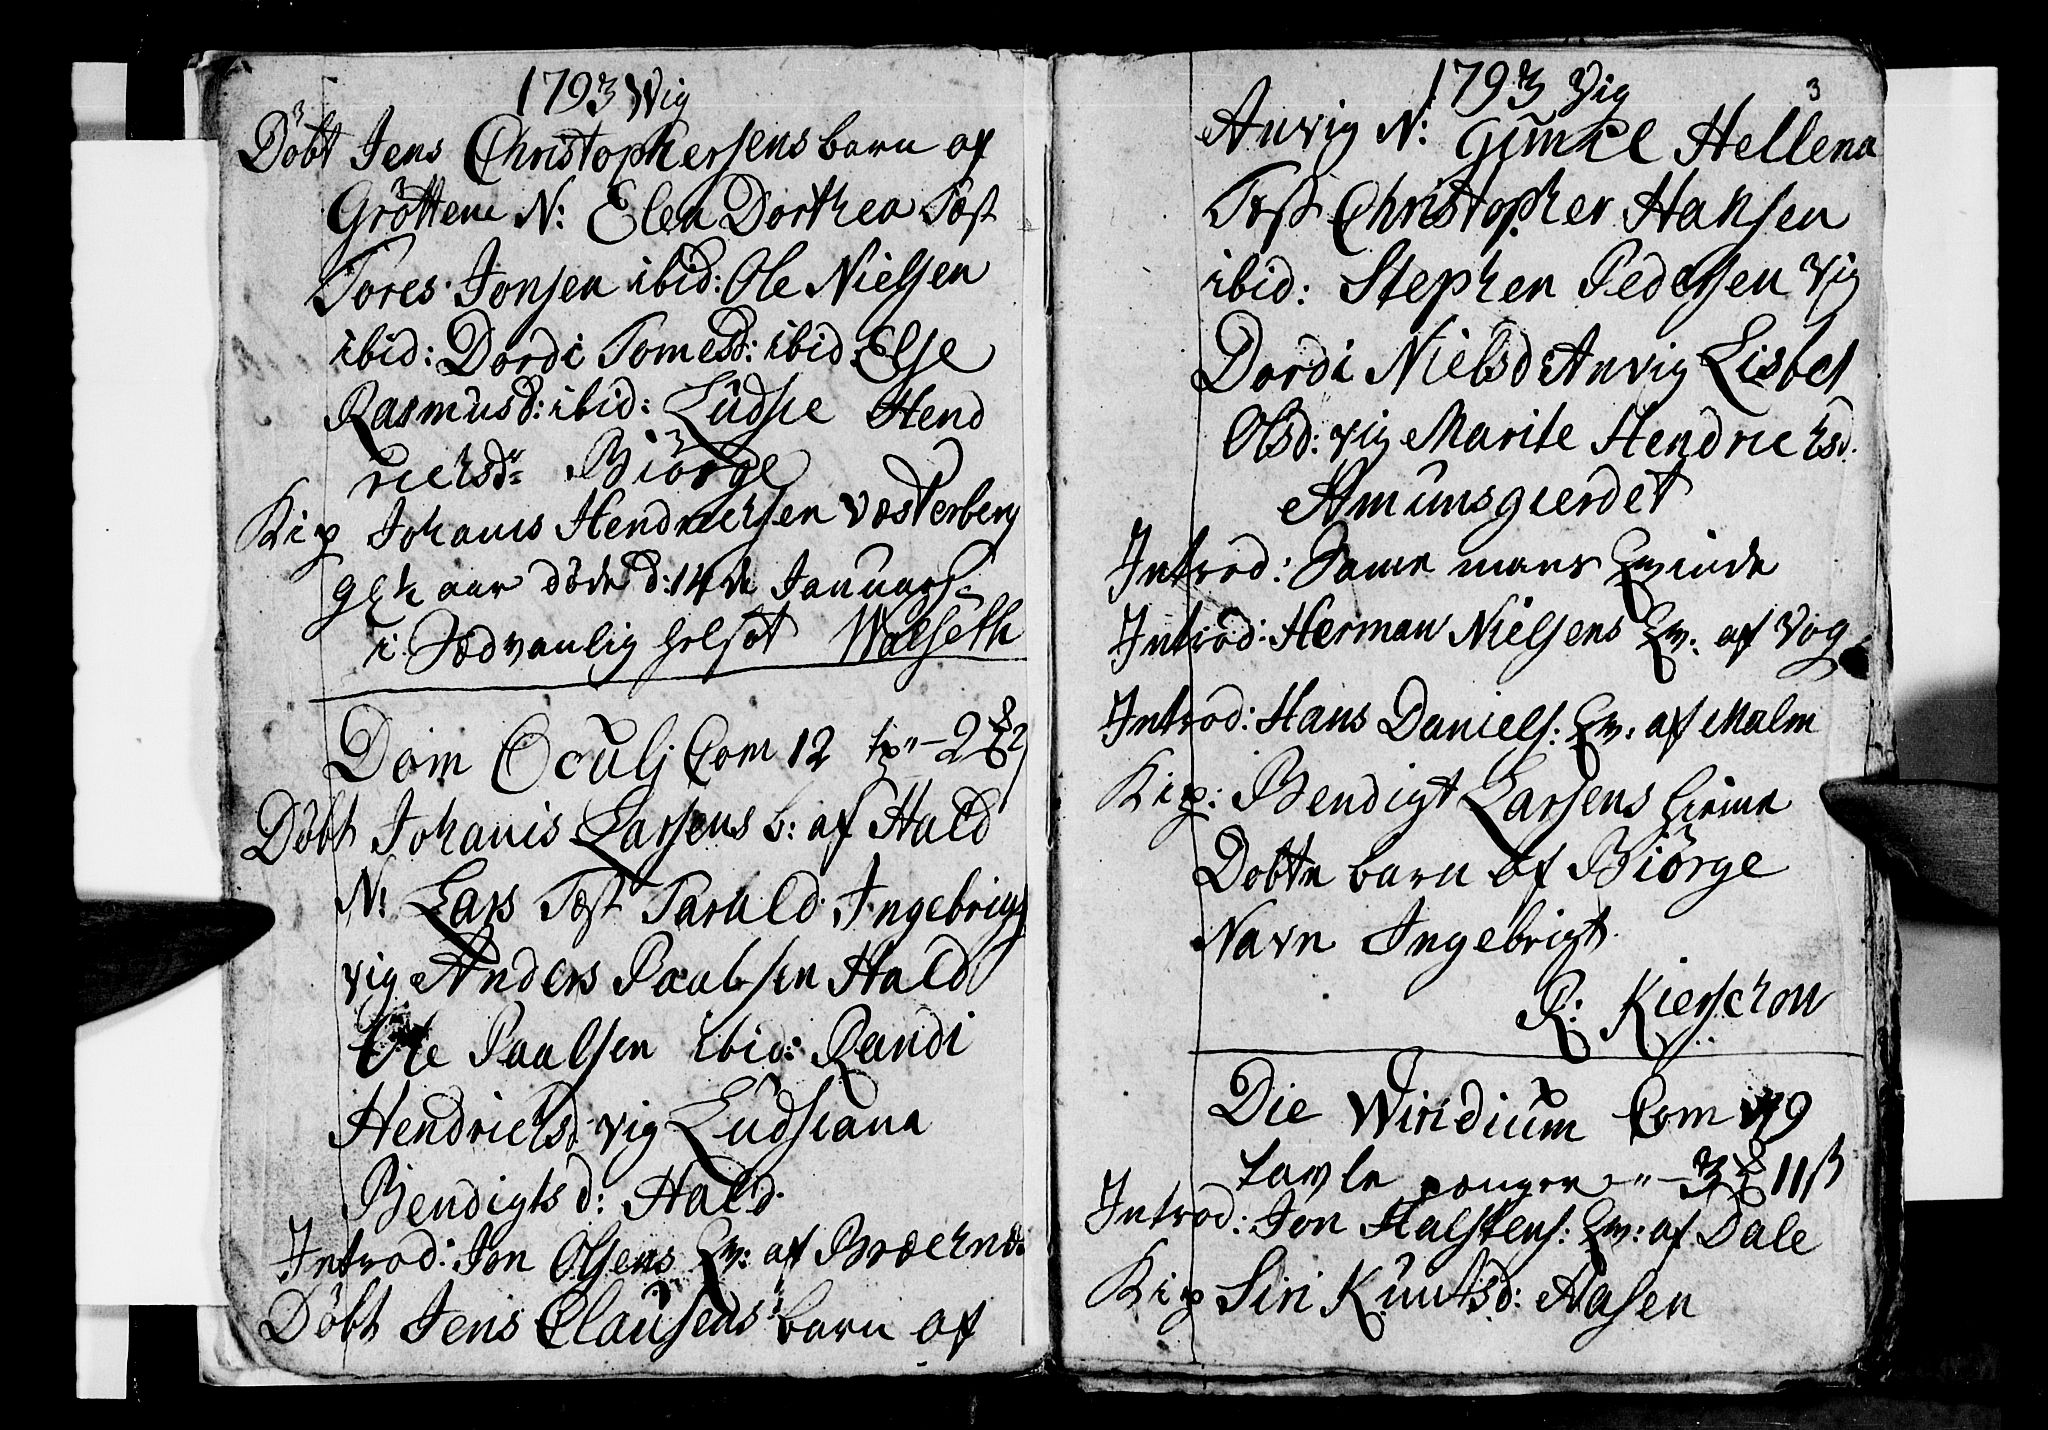 1793 Vig
Döbt Jens Christophersens barn af
Gröttene N: Elen Dorthea Tæst
Tores Jonsen ibid: Ole Nielsen
ibid: Dordi Tomesd: ibid Else
Rasmusd: ibid: Ludsie Hend
richsdr Biörge
Kip Johanis Hendrichsen Væsterberg
aar döde d: 14de Januarj
i Sædvanlig helsot Walseth
Dom Oculj Com 12
Döbt Johanis Larsens b: af Hald
N: Lars Tæst Tarald Ingebrigt
vig Anders Paalsen Hald
Ole Paalsen ibid: Randi
Hendrichsd vig Ludsiana
Bendigtsd: Hald
Introd: Jon Olsens Qv: af
Döbt Jens Clausens barn af
1793 Vig
3
Anvig N: Hellena
Tæst Christopher Hansen
ibid: Stephen Pedersen Vig
Dordi Nielsd Anvig Lisbet
Olsd: vig Marite Hendrichsd.
Amunsgierdet
Introd: Samme mans Qvinde
Introd: Herman Nielsens Qv: af Vog
Introd: Hans Daniels: Qv: af Malm
Kip: Bendigt Larsens hieme
Dobte barn af Biörge
Navn Ingebrigt
R: Kierschow
Die Wiridium Com 19
tavle penger
Introd: Jon Halstens: Qv: af Dale
Kip Siri Knutsd: Aasen